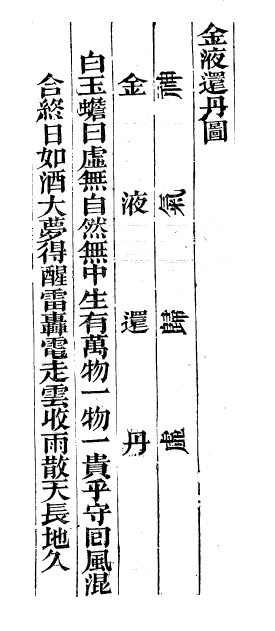 金液還丹圖
氣歸虛
金液還丹
白玉蟾曰虛無自然無中生有萬物一物一貴乎守囘風混
合終日如酒大夢得醒雷轟電走雲收雨散天長地久